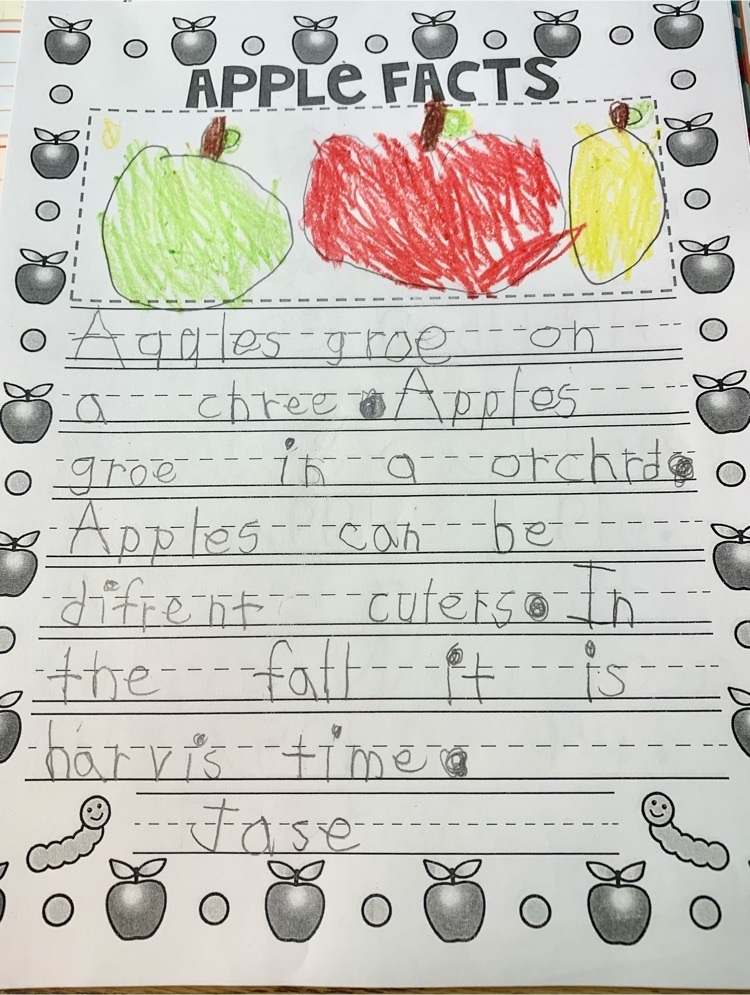 APPLE FACTS
Aqqles groe on
a chree. Apples
groe in a orchrd.
Apples can be
difrent culers. In
the fall it is
harvis time.
Jase